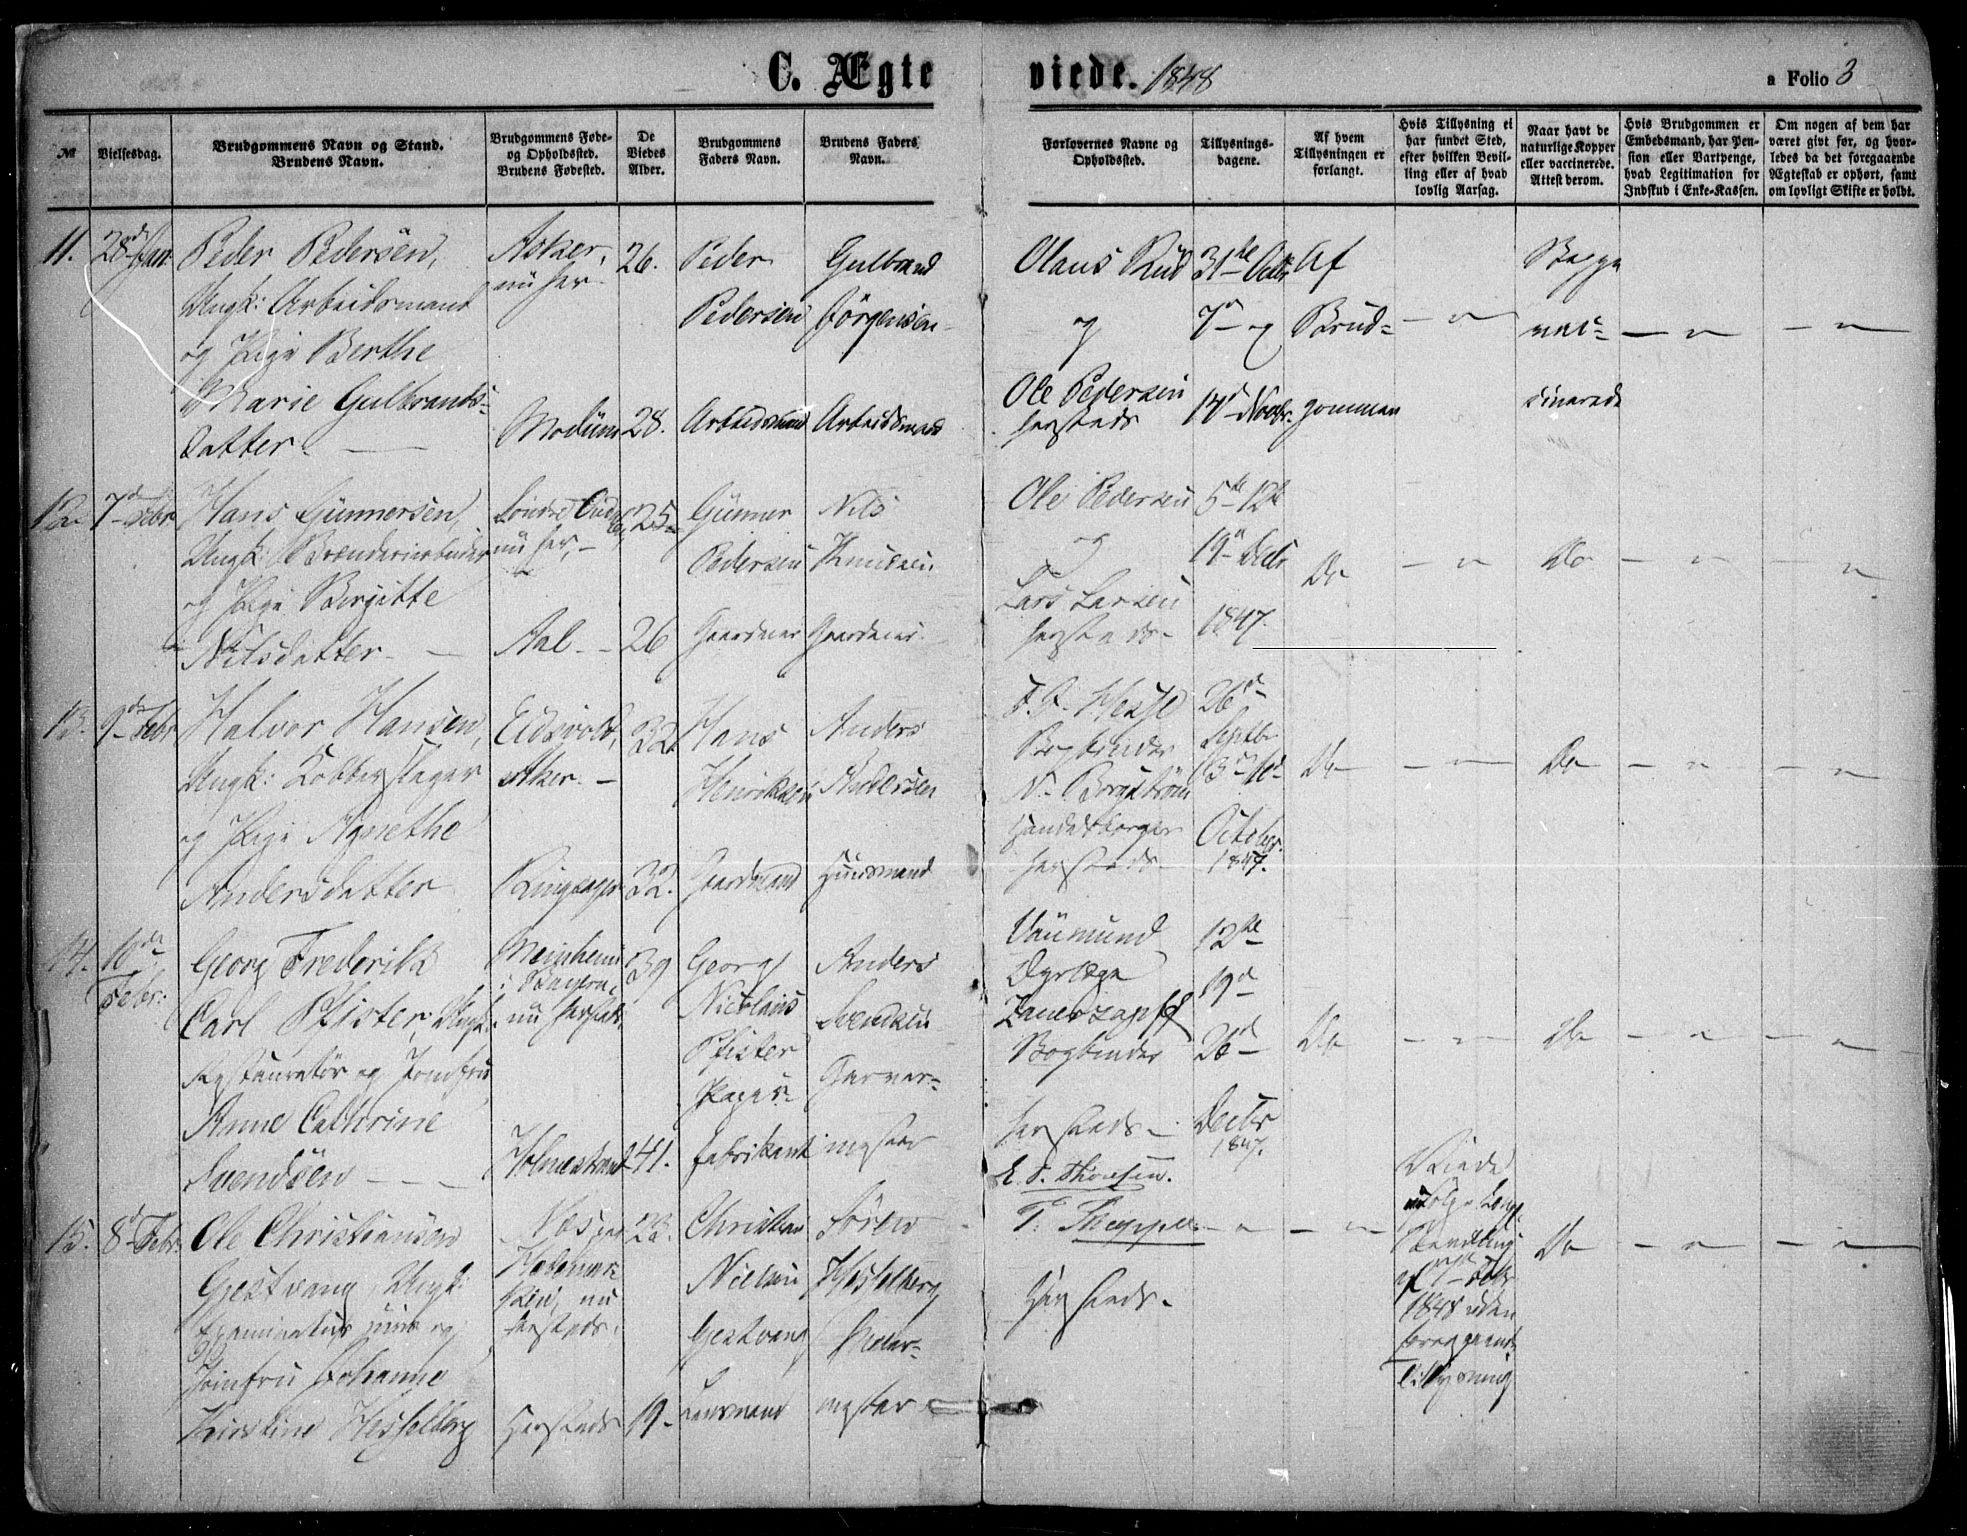 C. Ægteviede. 1848
a Folio 3
№
Vielsesdag.
Brudgommens Navn og Stand.
Brudens Navn.
Brudgommens Føde-
og Opholdssted.
Brudens Fødested.
De
Viedes
Alder.
Brudgommens
Faders Navn.
Brudens Faders
Navn.
Forlovernes Navne og
Opholdssted.
Tillysnings-
dagene.
Af hvem
Tillysningen er
forlangt.
Hvis Tillysning ei
har fundet Sted,
efter hvilken Bevil-
ling eller af hvad
lovlig Aarsag.
Naar havt de
naturlige Kopper
eller vaccinerede.
Attest derom.
Hvis Brudgommen er
Embedsmand, har Pen-
sion eller Vartpenge,
hvad Legitimation for
Indskud i Enke-Kassen.
Om nogen af dem har
været givt før, og hvor-
ledes da det foregaaende
Ægteskab er ophørt, samt
om lovligt Skifte er holdt.
11.
28d Jan
Peder Pedersen,
Ungk: Arbeidsmand
og Pige Berthe
Marie Gulbrands-
datter.
Asker,
nu her.
Modum
26.
28.
Peder
Pedersen
Arbeidsmand
Gulbrand
Jörgensen
Arbeidsmand
Olaus Rud
og
Ole Pedersen
hersteds
31te Octbr
7d og
14d Novbr.
Af
Brud-
gommen
Begge
vac-
cinerede
12
7d Febr
Hans Gunnersen,
Ungk: Brænderiarbeider
og Pige Birgitte
Nilsdatter
nu her,
Aal
25
26
Gunner
Pedersen
Gaardmand
Nils
Knudsen
Gaardmand
Ole Pedersen
og
Lars Larsen
hersteds
5te 12te
19d Decbr
1847.
Do
Do
13.
9de Febr
Halvor Hansen,
Ungk: Kobberslager
og Pige Agnethe
Andersdatter
Eidsvold,
Aker.
Ringsager
32
32.
Hans
Henriksen
Gaardmand
Anders
Andersen
Huusmand
Bogbinder
N. Borgström
Handelsborger
hersteds
26d
Septbr
3d 10d
October
1847.
Do
Do
14.
10de
Febr:
Georg Frederik
Carl Pfister, Ungk.
Restauratör og Jomfru
Anne Cathrine
Svendsen
i Bayern,
nu hersteds
Holmestrand
39
41.
Georg
Nicolaus
Pfister
fabrikant
Anders
Svendsen
Garver-
mester
Vaumund
Bogbinder
hersteds
12te
19d
26d
Decbr
1847.
Do
Do
15.
8d Febr.
Ole Christiansen
Gjestvang, Ungk:
Examinatus juris og
Jomfru Johanne
Kirstine Hesselberg
Næs paa
Hedemar-
ken, nu
hersteds.
Hersteds
28.
19
Christian
Nielsen
Gjestvang
Lensmand
Sören
Hesselberg
mester
E. S. Thomsen.
Hersteds
Viede
ifölge Kong.
Bevilling
af 7de Febr
1848 uden
foregaaende
Tillysning
Do